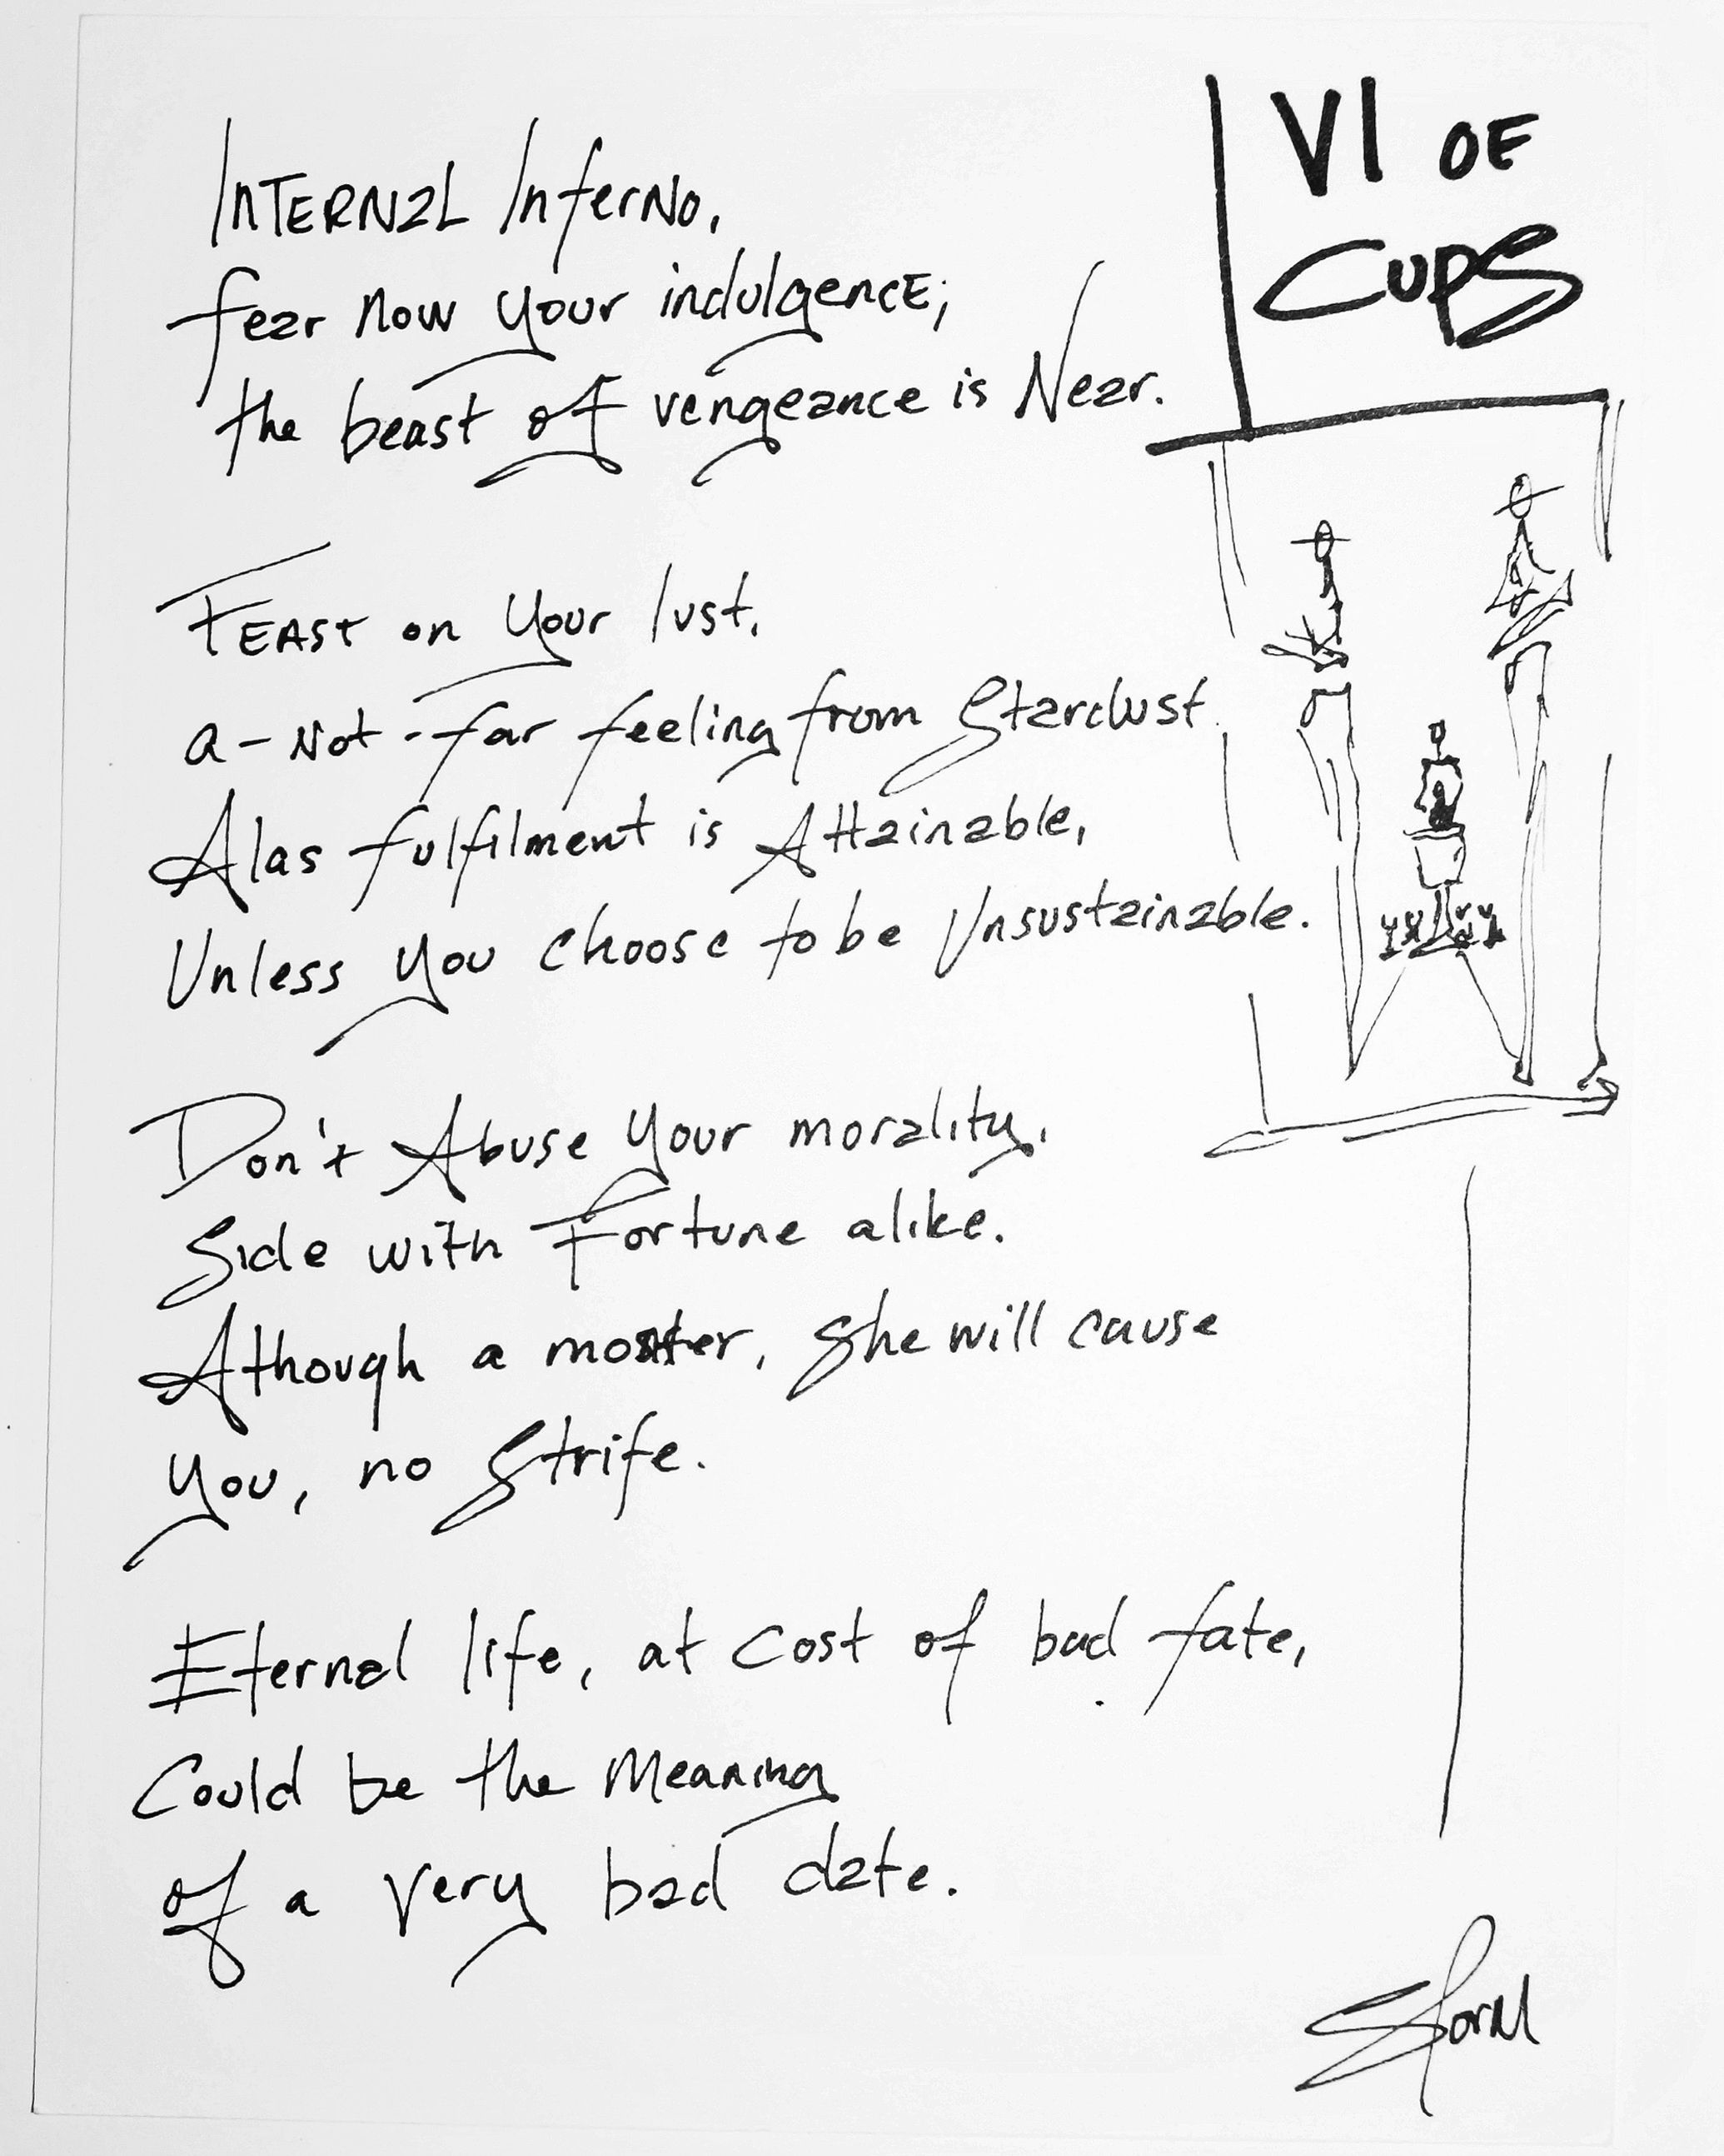 VI OF
CUPS
Internal Inferno,
fear now your indulgence;
the beast of vengeance is Near.
Feast on your lust,
a-Not-far feeling from Stardust.
Alas fulfilment is Attainable,
Unless you choose to be Unsustainable.
Don't Abuse your morality,
Side with Fortune alike.
Athough a monster, she will cause
you, no Strife.
Eternal life, at cost of bad fate,
Could be the Meaning
of a very bad date.
Storm